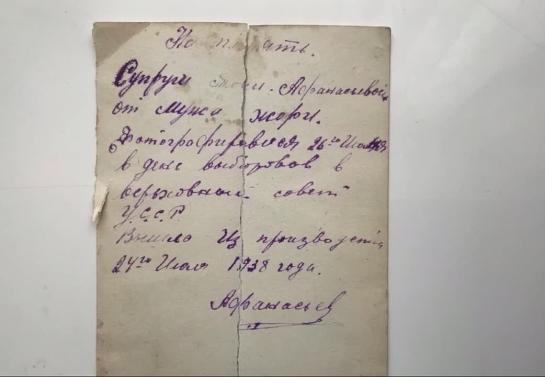 На память.
Супруги моей Афанасьевой
от мужа жоры.
Фотографировался 26го Июня
в день выборовов в
верховный совет
У.С.С.Р
Вышло Из производства
24го Июля 1938 года.
Афанасьев